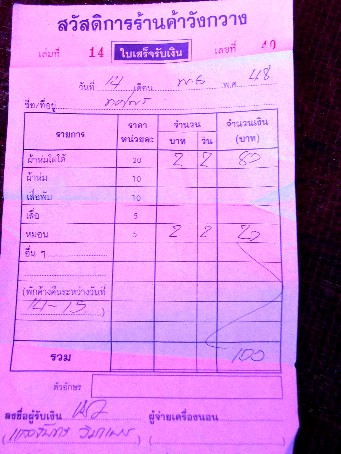 สวัสดิการร้านค้าวังกวาง
เล่มที่ 14 ใบเสร็จรับเงิน เลขที่ 40
วันที่ 14 เดือน พ.ย พ.ศ. 48
ชื่อ/ที่อยู่
รายการ ราคา หน่วยละ จำนวน บาท วัน จำนวนเงิน (บาท)
ผ้าห่มใยใต้ 20 2 2 80
ผ้าห่ม 10
เสื่อพับ 10
เสื่อ 5
หมอน 5 2 2 20
อื่น ๆ
(พักค้างคืนระหว่างวันที่
14-15)
รวม 100
ตัวอักษร
ลงชื่อผู้รับเงิน ผู้จ่ายเครื่องนอน